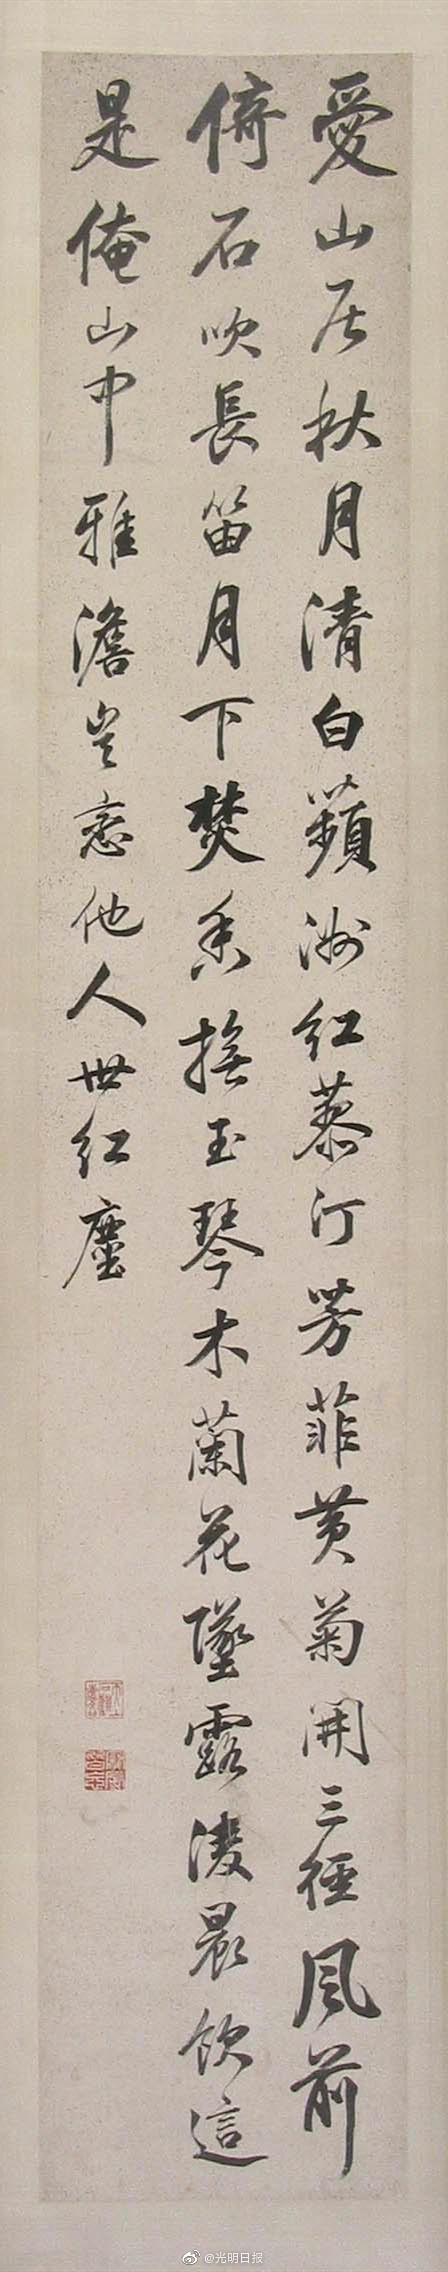 愛山居秋月清白蘋洲紅蓼汀芳菲黄菊開三徑風前
倚石吹長笛月下焚香撫玉琴木蘭花墜露淩晨飲這
是俺山中雅澹豈戀他人世紅塵
@光明日报